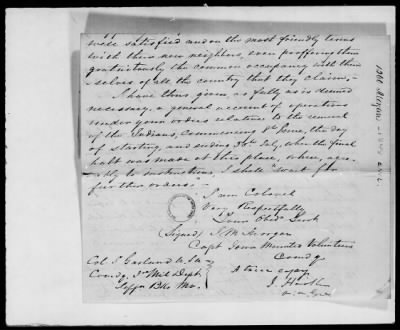 were satisfied and on the most friendly terms
with their new neighbors, even proffering them
gratuitously the common occupancy with them
selves of all the country that they claim,-
I have thus given as fully as is deemed
necessary, a general account of operations
under your orders relative to the removal
of the Indians, commencing 8th June, the day
of starting, and ending 30th July, when the final
halt was made at this place, where, agree-
ably to instructions, I shall "wait for
further orders."-
I am Colonel
Very Respectfully
Your Obdt Servt
(Signed) J. M. Morgan
Capt Iowa Mounted Volunteers
Comdg
A true copy
Col J Garland U.S.A
Comdg 3d Mil Dept.
Jeffn Bks Mo.
Morgan